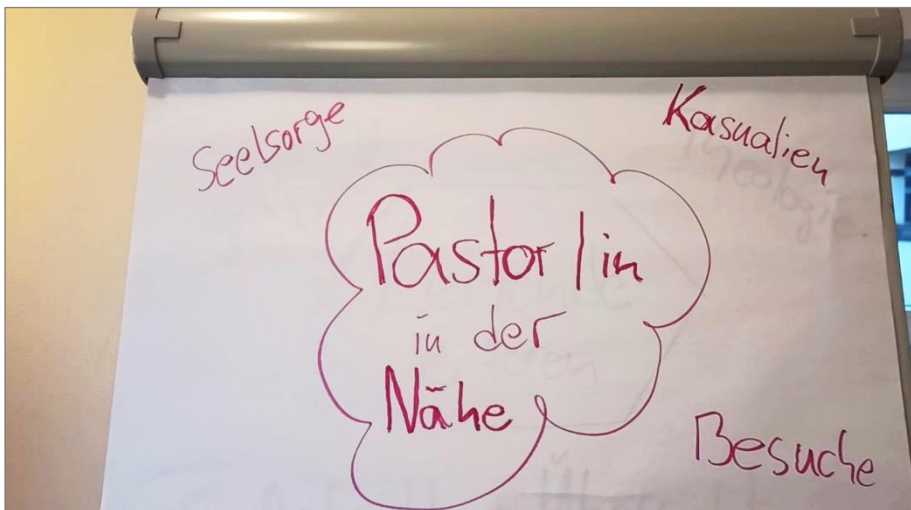 Seelsorge
Kasualien
Pastor/in
in der
Nähe
Besuche